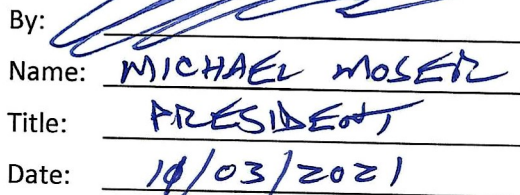 By:
Name: MICHAEL MOSER
Title: PRESIDENT
Date: 10/03/2021